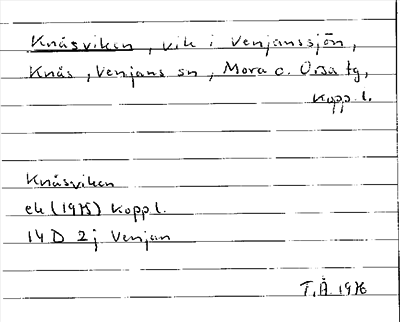 Knåsviken, vik i Venjanssjön,
Knås, Venjans sn, Mora o. Orsa tg,
Kopp. l.
Knåsviken
ek (1975) Kopp l.
14 D 2 j Venjan
T.Å. 1976